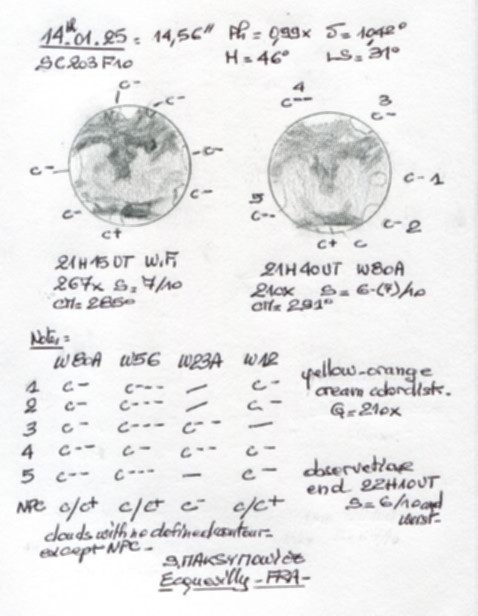 14th.01.25 = 14,56" Ph = 0,99x D = 10,42°
SC203F10 H = 46° LS = 31°
c-
c-
c-
c-
c-
c-
c+
4
c--
3
c-
c- 1
c- 2
5
c--
c+ c
21H15UT W.Fi
267x S = 7/10
CM = 285°
21H40UT W80A
210x S = 6-(7)/10
CM = 291°
Notes =
W80A W56 W23A W12
1 c- c--- / c-
2 c- c--- / c-
3 c- c--- c-- —
4 c-- c- c-- c-
5 c-- c--- — c-
NPC c/c+ c/c+ c- c/c+
yellow-orange
cream color disk.
G = 210x
observation
end 22H10UT
S = 6/10 and
worst.
clouds with no defined contour.
except NPC -
Ecquevilly - FRA -